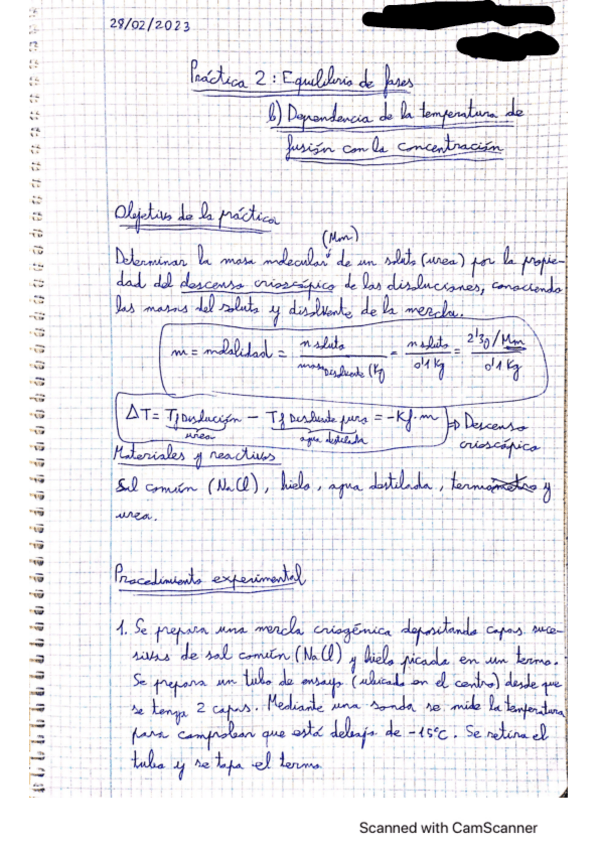 29/02/2023
Práctica 2 : Equilibrio de fases
b) Dependencia de la temperatura de
fusión con la concentración
Objetivo de la práctica
(Mm)
Determinar la masa molecular de un soluto (urea) por la propie-
dad del descenso crioscópico de las disoluciones, conociendo
las masas del soluto y disolvente de la mezcla.
m = molalidad = n soluto / masa Disolvente (Kg) = n soluto / 0'1 Kg = 2'30/Mm / 0'1 Kg
ΔT = Tf Disolución - Tf Disolvente puro = -Kf · m ⇒ Descenso
urea agua destilada crioscópico
Materiales y reactivos
Sal común (NaCl), hielo, agua destilada, termo y
urea.
Procedimiento experimental
1. Se prepara una mezcla criogénica depositando capas suce-
sivas de sal común (NaCl) y hielo picado en un termo.
Se prepara un tubo de ensayo (ubicado en el centro) desde que
se tenga 2 capas. Mediante una sonda se mide la temperatura
para comprobar que está debajo de -15°C. Se retira el
tubo y se tapa el termo.
Scanned with CamScanner